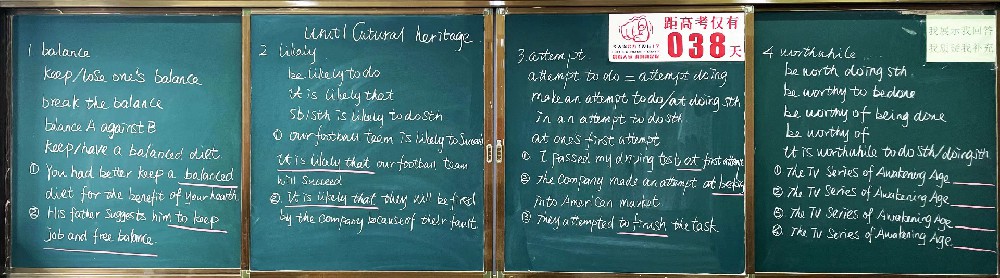 Unit 1 Cutural heritage.
1 balance
keep/lose one's balance
break the balance
balance A against B
keep/have a balanced diet.
① You had better keep a balanced
diet for the benefit of your health
② His father suggests him to keep
job and free balance.
2 likely
be likely to do
it is likely that
sb/sth is likely to do sth
① our football team is likely to
it is likely that our football team
will succeed
② It is likely that they will be fired
by the company because of their fault.
距高考仅有
038天
3. attempt
attempt to do = attempt doing
make an attempt to do/at doing sth
in an attempt to do sth
at one's first attempt
① I passed my driving test at first
② The Company made an attempt at
into American market
③ They attempted to finish the task.
我展示我回答
我质疑我补充
4 worthwhile
be worth doing sth.
be worthy to be done
be worthy of being done
be worthy of
it is worthwhile to do sth/doing sth
① The TV Series of Awakening Age
② The TV Series of Awakening Age
③ The TV Series of Awakening Age
④ The TV Series of Awakening Age